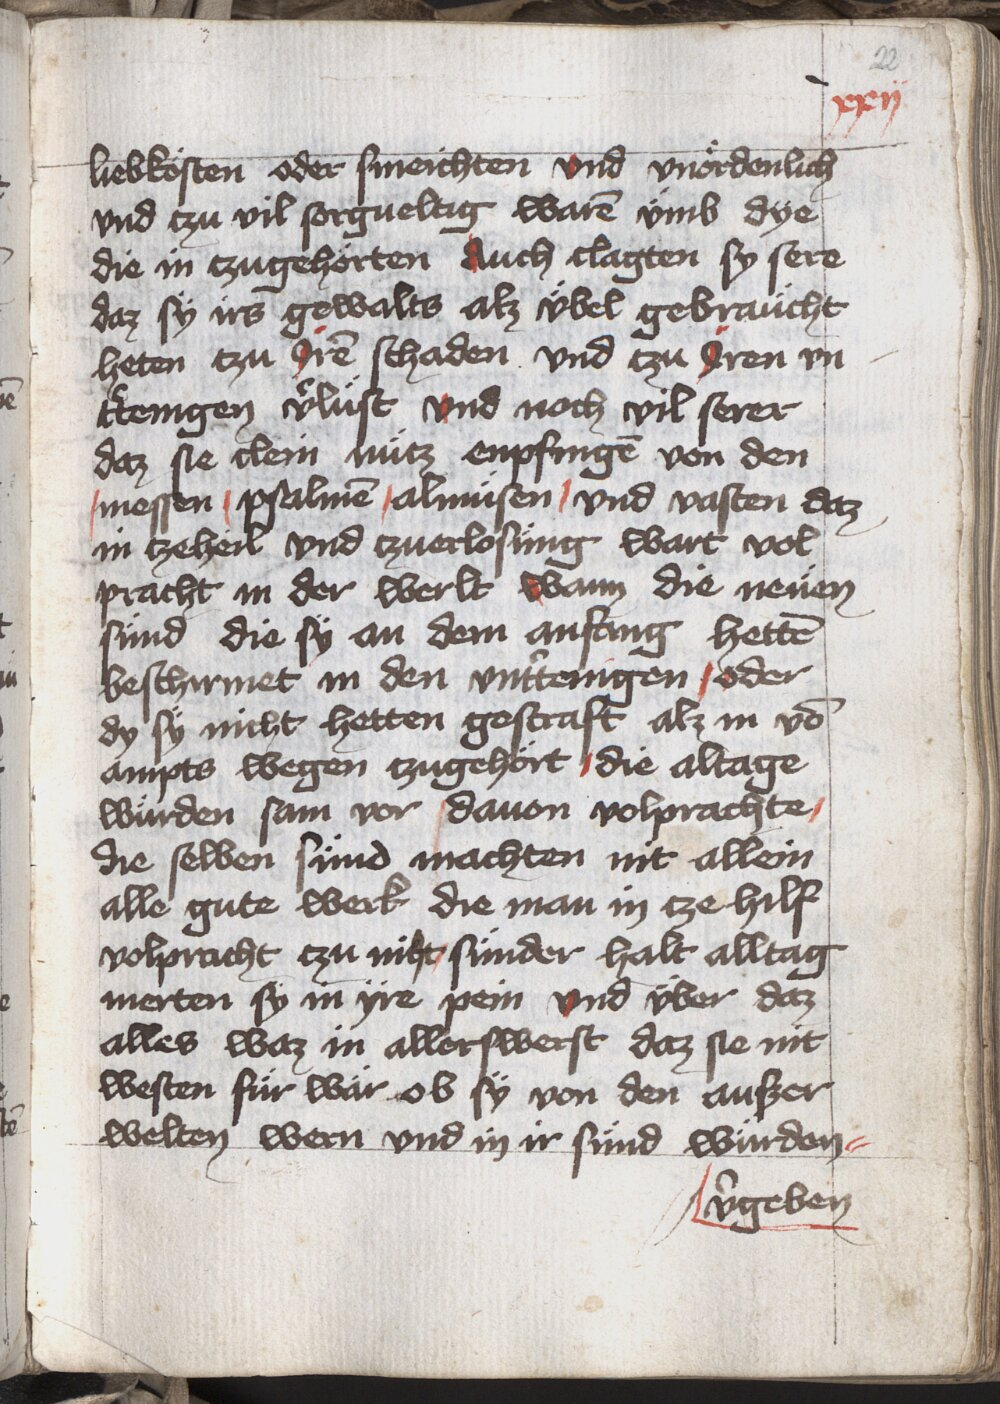 22
xxij
liebkösten oder smeichten vnd vnördenlich
vnd tzu vil sorgueltig warē ümb dye
die in tzugehörten Auch clagten sy sere
daz sÿ irs gewalts alz übel gebraücht
heten tzu Irē schaden vnd tzu Iren vn
tt̄enigen v̄lüst vnd noch vil serer
daz sie clein nütz enpfingē von den
/ messen / psalmē / almüsen / vnd vasten daz
in tzeheil vnd tzuerlosüng wart vol
pracht in der werlt wann die neüen
sünd die sÿ an dem anfang hettē
beschirmet in den vntt̄enigen / oder
dy sÿ nicht hetten gestraft alz in vō
ampts wegen tzugehört / die altage
würden sam vor / dauon volprachte /
die selben sünd machten nit allein
alle gute werk die man in tze hilf
volpracht tzu nicht / sünder halt alltag
merten sÿ in ÿre pein vnd über daz
alles waz in allerswerst daz sie nit
westen für wär ob sÿ von den außer
welten wern vnd in ir sünd würden =
v̄geben